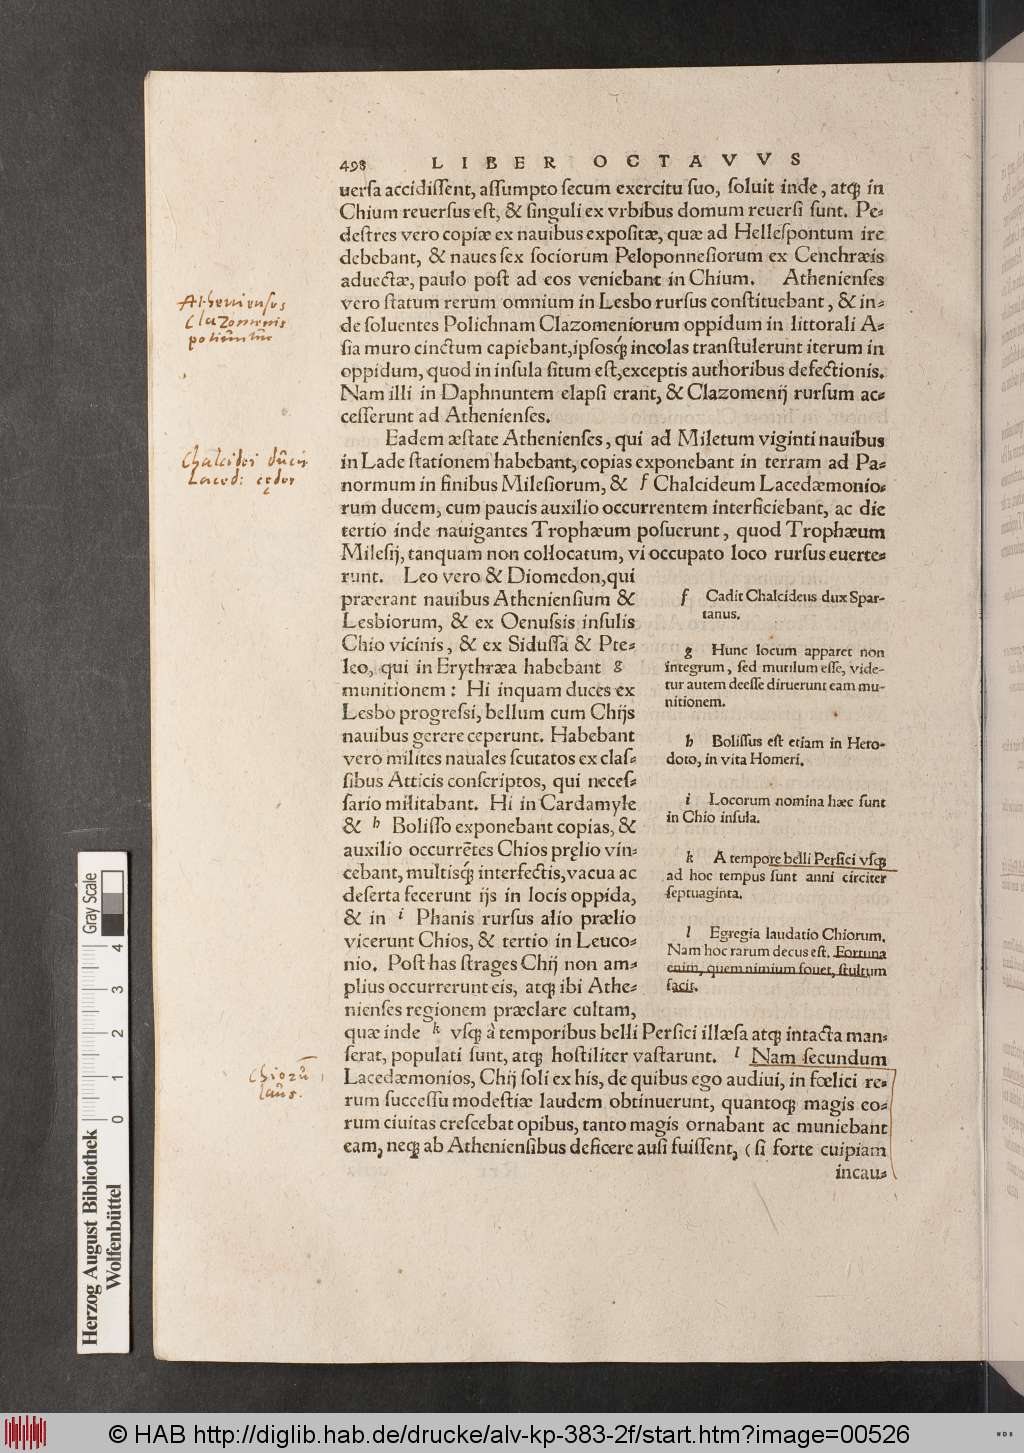 498 LIBER OCTAVVS
uerſa accidiſſent, aſſumpto ſecum exercitu ſuo, ſoluit inde, atq; in
Chium reuerſus eſt, & ſinguli ex vrbibus domum reuerſi ſunt. Pe-
deſtres vero copiæ ex nauibus expoſitæ, quæ ad Helleſpontum ire
debebant, & naues ſex ſociorum Peloponneſiorum ex Cenchræis
aduectæ, paulo poſt ad eos veniebant in Chium. Athenienſes
vero ſtatum rerum omnium in Lesbo rurſus conſtituebant, & in-
de ſoluentes Polichnam Clazomeniorum oppidum in littorali A-
ſia muro cinctum capiebant, ipſosq́; incolas tranſtulerunt iterum in
oppidum, quod in inſula ſitum eſt, exceptis authoribus defectionis.
Nam illi in Daphnuntem elapſi erant, & Clazomenij rurſum ac-
ceſſerunt ad Athenienſes.
Athenienses
Clazomenis
potiũntũr
Eadem æſtate Athenienſes, qui ad Miletum viginti nauibus
in Lade ſtationem habebant, copias exponebant in terram ad Pa-
normum in finibus Mileſiorum, & f Chalcideum Lacedæmonio-
rum ducem, cum paucis auxilio occurrentem interficiebant, ac die
tertio inde nauigantes Trophæum poſuerunt, quod Trophæum
Mileſij, tanquam non collocatum, vi occupato loco rurſus euerte-
runt. Leo vero & Diomedon, qui
præerant nauibus Athenienſium &
Lesbiorum, & ex Oenuſsis inſulis
Chio vicinis, & ex Siduſſa & Pte-
leo, qui in Erythræa habebant g
munitionem: Hi inquam duces ex
Lesbo progreſsi, bellum cum Chijs
nauibus gerere ceperunt. Habebant
vero milites nauales ſcutatos ex claſ-
ſibus Atticis conſcriptos, qui neceſ-
ſario militabant. Hi in Cardamyle
& h Boliſſo exponebant copias, &
auxilio occurrẽtes Chios pręlio vin-
cebant, multisq́; interfectis, vacua ac
deſerta fecerunt ijs in locis oppida,
& in i Phanis rurſus alio prælio
vicerunt Chios, & tertio in Leuco-
nio. Poſt has ſtrages Chij non am-
plius occurrerunt eis, atq; ibi Athe-
nienſes regionem præclare cultam,
quæ inde k vſq; à temporibus belli Perſici illæſa atq; intacta man-
ſerat, populati ſunt, atq; hoſtiliter vaſtarunt. l Nam ſecundum
Lacedæmonios, Chij ſoli ex his, de quibus ego audiui, in fœlici re-
rum ſucceſſu modeſtiæ laudem obtinuerunt, quantoq; magis eo-
rum ciuitas creſcebat opibus, tanto magis ornabant ac muniebant
eam, neq; ab Athenienſibus deficere auſi fuiſſent, (ſi forte cuipiam
incau-
Chalcidei dũcis
Laced: cędes
f Cadit Chalcideus dux Spar-
tanus.
g Hunc locum apparet non
integrum, ſed mutilum eſſe, vide-
tur autem deeſſe diruerunt eam mu-
nitionem.
h Boliſſus eſt etiam in Hero-
doto, in vita Homeri.
i Locorum nomina hæc ſunt
in Chio inſula.
k A tempore belli Perſici vſq;
ad hoc tempus ſunt anni circiter
ſeptuaginta.
l Egregia laudatio Chiorum.
Nam hoc rarum decus eſt. Fortuna
enim, quem nimium fouet, ſtultum
facit.
Chiorũ
laũs.
Gray Scale
0 1 2 3 4
Herzog August Bibliothek
Wolfenbüttel
© HAB http://diglib.hab.de/drucke/alv-kp-383-2f/start.htm?image=00526